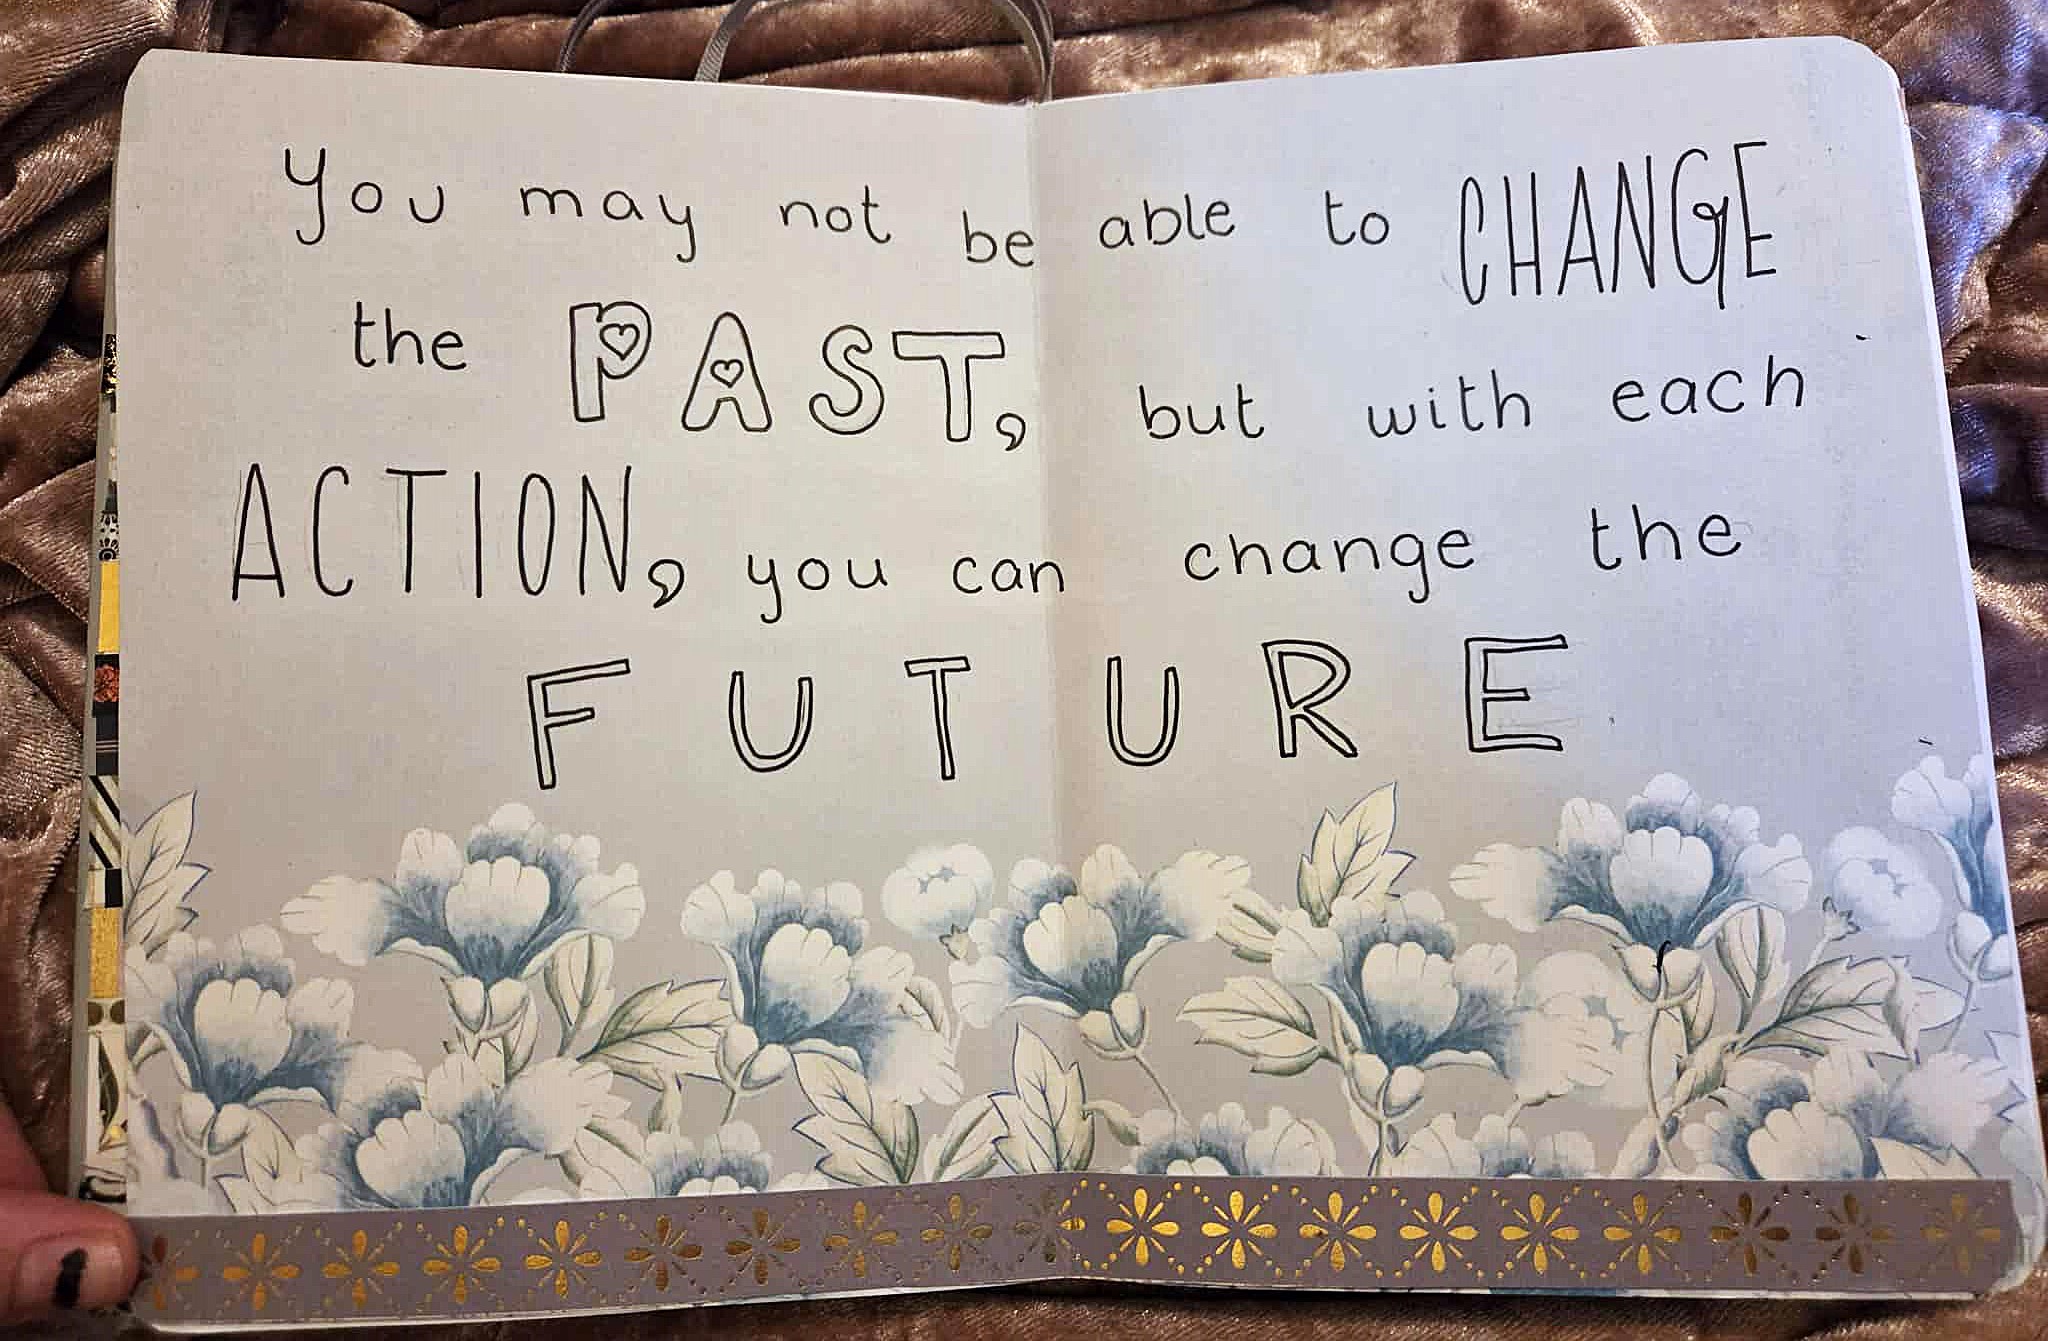 You may not be able to CHANGE
the PAST, but with each
ACTION, you can change the
FUTURE